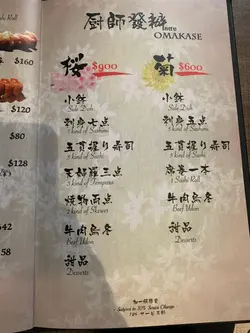 廚師發辦
OMAKASE
桜 $900
菊 $600
小鉢
Side Dish
刺身七点
7 kind of Sashimi
五貫握り寿司
5 kind of Sushi
天婦羅三点
3 kind of Tempura
焼物両点
2 kind of Skewer
牛肉烏冬
Beef Udon
甜品
Desserts
小鉢
Side Dish
刺身五点
5 kind of Sashimi
五貫握り寿司
5 kind of Sushi
席巻一本
1 Sushi Roll
牛肉烏冬
Beef Udon
甜品
Desserts
加一服務費
Subject to 10% Service Charge
$160
$120
$80
$128